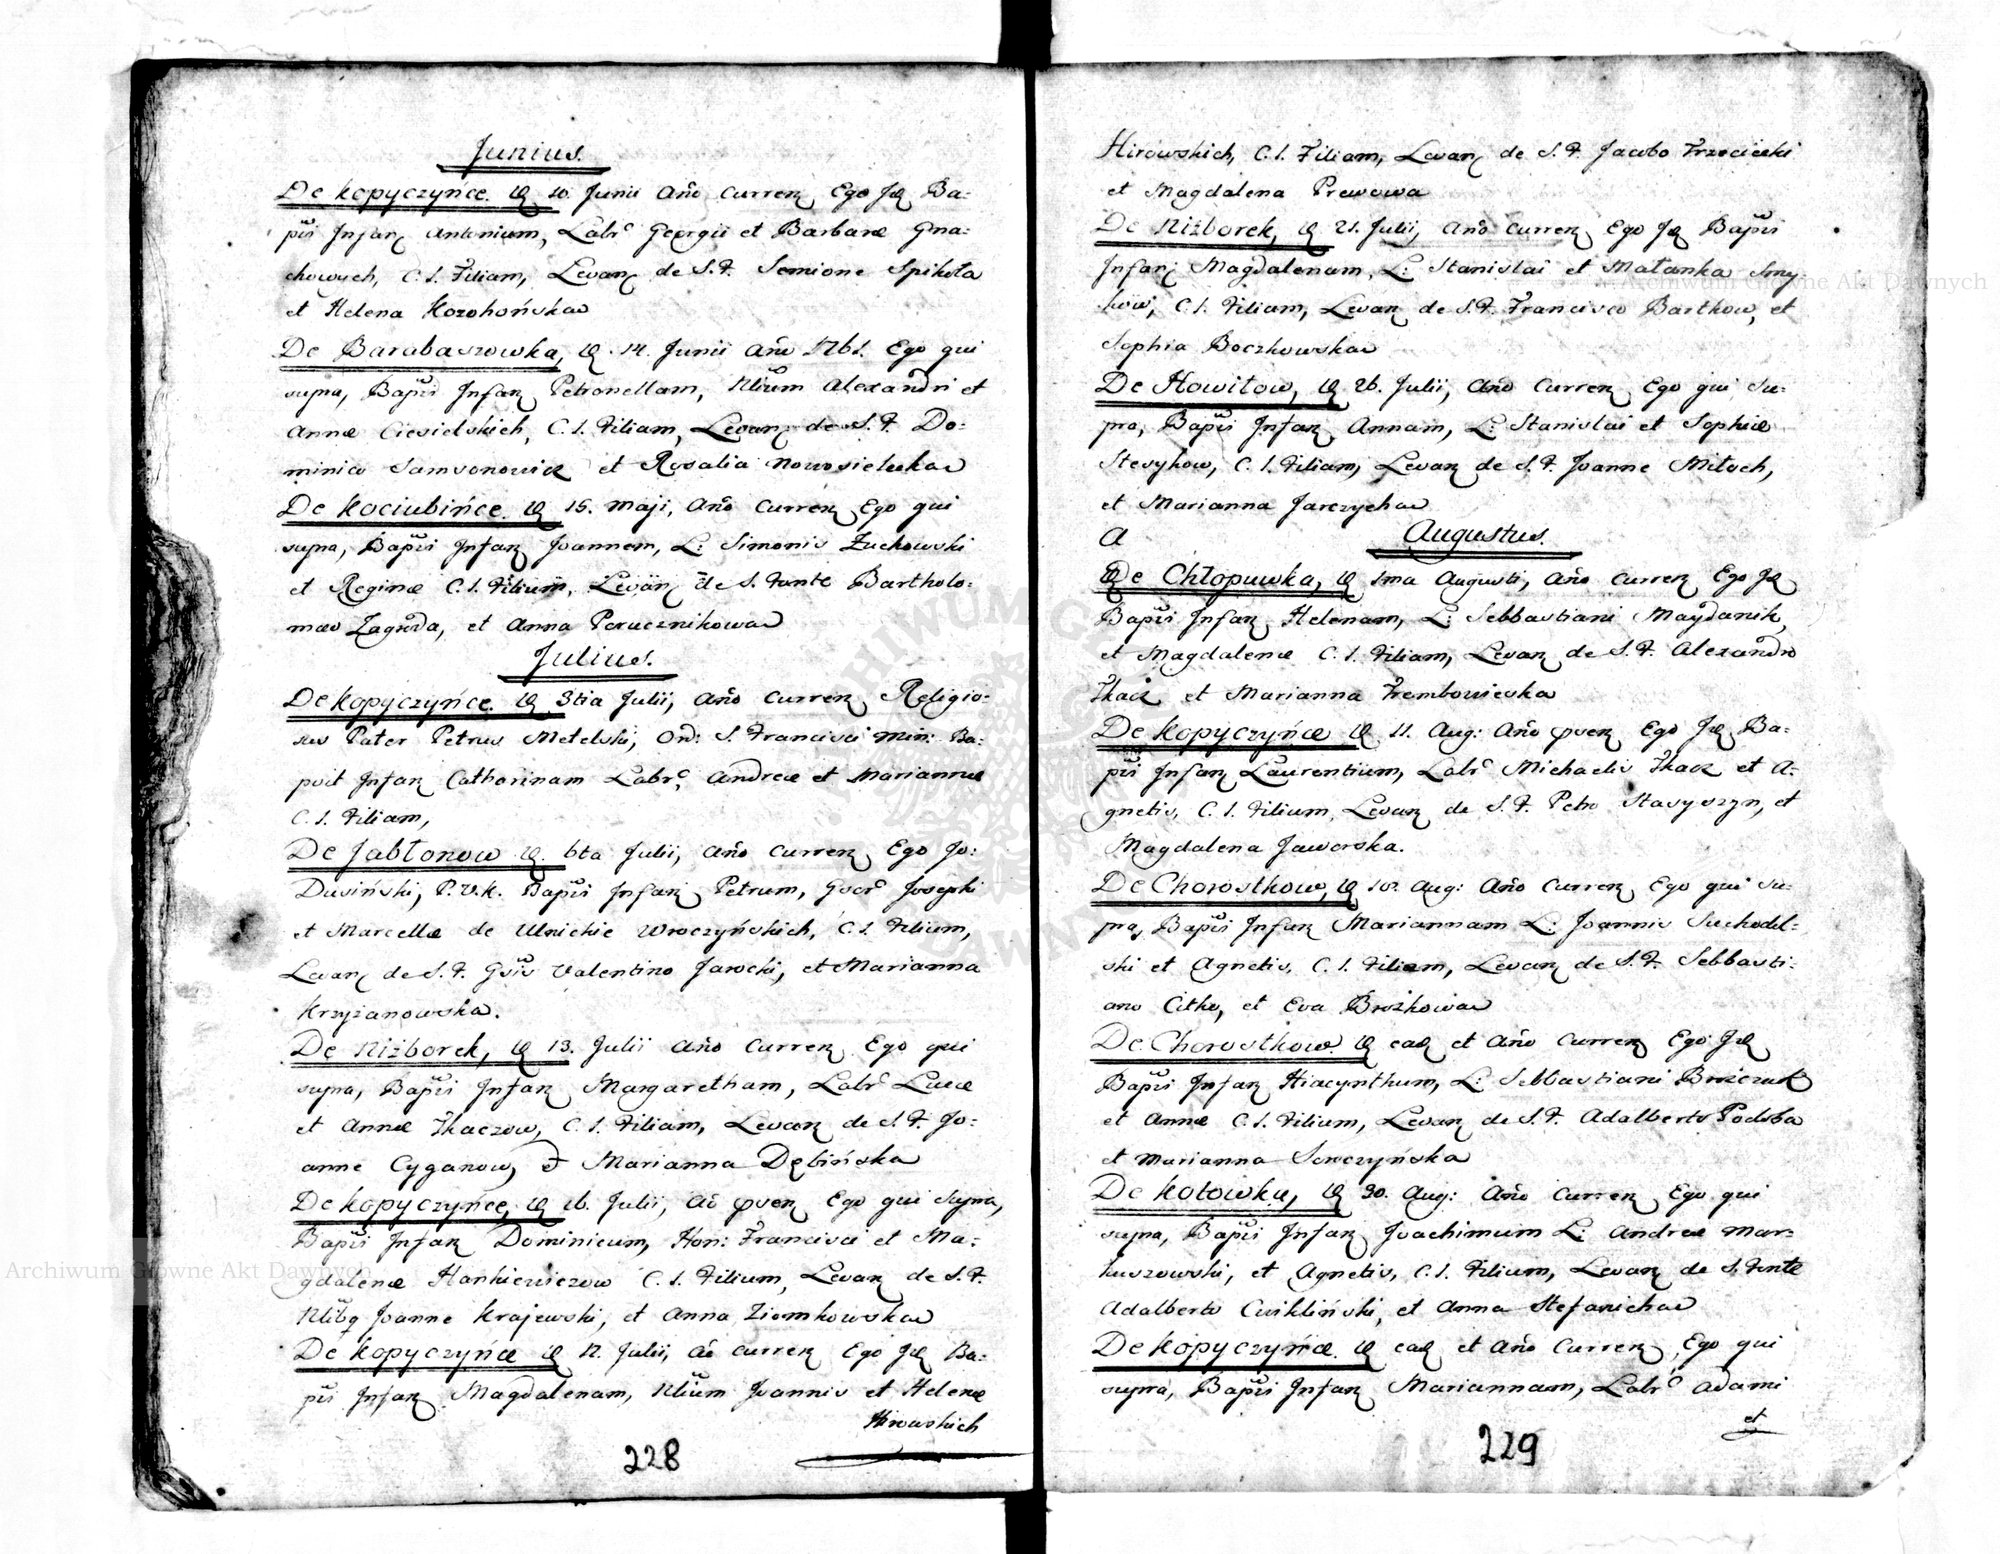 Junius.
De Kopyczyńce. 10. Junii Año Curren Ego Ba-
Infan Antonium, Labr. Georgii et Barbaræ Gna-
chowych, C. I. Filium, Levan de S. F. Semione Spikota
et Helena Korohońska
De Barabaszowka, 14. Junii Año 1761. Ego qui
supra, Infan Petronellam, Alexandri et
Annæ Ciesielskich, C. I. Filiam, Levan de S. F. Do-
minico Samsonowicz et Rosalia Nowosielska
De Kociubińce. 15. Maji, Año Curren Ego qui
supra, Infan Joannem, L: Simonis Zuchowski
et Reginæ C. I. Filium, Levan de S. Fonte Bartholo-
mæo Zagroda, et Anna Porucznikowa
Julius.
De Kopyczyńce. 3tia Julii, Año Curren Religio-
sus Pater Petrus Metelski, Ord: S. Francisci Min: Ba-
Infan Catharinam Labr. Andreæ et Mariannæ
C. I. Filiam,
De Jabłonow 6ta Julii, Año Curren Ego Jo:
Dusiński, P. V. K. Infan Petrum, Josephi
et Marcellæ de Ulnickie Wroczyńskich, C. I. Filium,
Levan de S. F. Valentino Jarocki, et Marianna
Krzyżanowska.
De Niżborek, 13. Julii Año Curren Ego qui
supra, Infan Margaretham, Labr. Lucæ
et Annæ Tkaczow, C. I. Filiam, Levan de S. F. Jo-
anne Cyganow, et Marianna Dębińska
De Kopyczyńce, 16. Julii, Ego qui supra,
Infan Dominicum, Hon: Francisci et Ma-
gdalenæ Hankiewiczow C. I. Filium, Levan de S. F.
Joanne Krajewski, et Anna Ziomkowska
De Kopyczyńce 17. Julii, curren Ego Ba-
Infan Magdalenam, Joannis et Helenæ
Hirowskich
228
Hirowskich, C. I. Filiam, Levan de S. F. Jacobo Trzeciecki
et Magdalena Prewowa
De Niżborek, 21. Julii, Año Curren Ego
Infan Magdalenam, L: Stanislai et Małanka Smy-
kow, C. I. Filiam, Levan de S. F. Francisco Bartkow, et
Sophia Boczkowska
De Howiłow, 26. Julii, Año Curren Ego qui Su-
pra, Infan Annam, L: Stanislai et Sophiæ
Stesykow, C. I. Filiam, Levan de S. F. Joanne Miłoch,
et Marianna Jarczycha
A Augustus.
De Chłopuwka, 1ma Augusti, Año Curren Ego
Infan Helenam, L: Sebbastiani Maydanik,
et Magdalenæ C. I. Filiam, Levan de S. F. Alexandro
Tkacz et Marianna Trembowieska
De Kopyczyńce 11. Aug: Año Ego Ba-
Infan Laurentium, Labr. Michaelis Tkacz et A-
gnetis, C. I. Filium, Levan de S. F. Petro Stasyszyn, et
Magdalena Jaworska.
De Chorostkow, Aug: Año Curren Ego qui su-
pra, Infan Mariannam L: Joannis Suchodol-
ski et Agnetis, C. I. Filiam, Levan de S. F. Sebbasti-
ano Citko, et Eva Brożkowa
De Chorostkow. et Año Curren Ego
Infan Hiacynthum, L: Sebbastiani
et Annæ C. I. Filium, Levan de S. F. Adalberto Podoba
et Marianna Senczyńska
De Kotowka, 30. Aug: Año Curren Ego qui
supra, Infan Joachimum L: Andreæ Mar-
kuszowski, et Agnetis, C. I. Filium, Levan de S. Fonte
Adalberto Cwikliński, et Anna Stefanicha
De Kopyczyńce. et Año Curren Ego qui
supra, Infan Mariannam, Labr. Adami
et
229
Archiwum Główne Akt Dawnych
Archiwum Główne Akt Dawnych